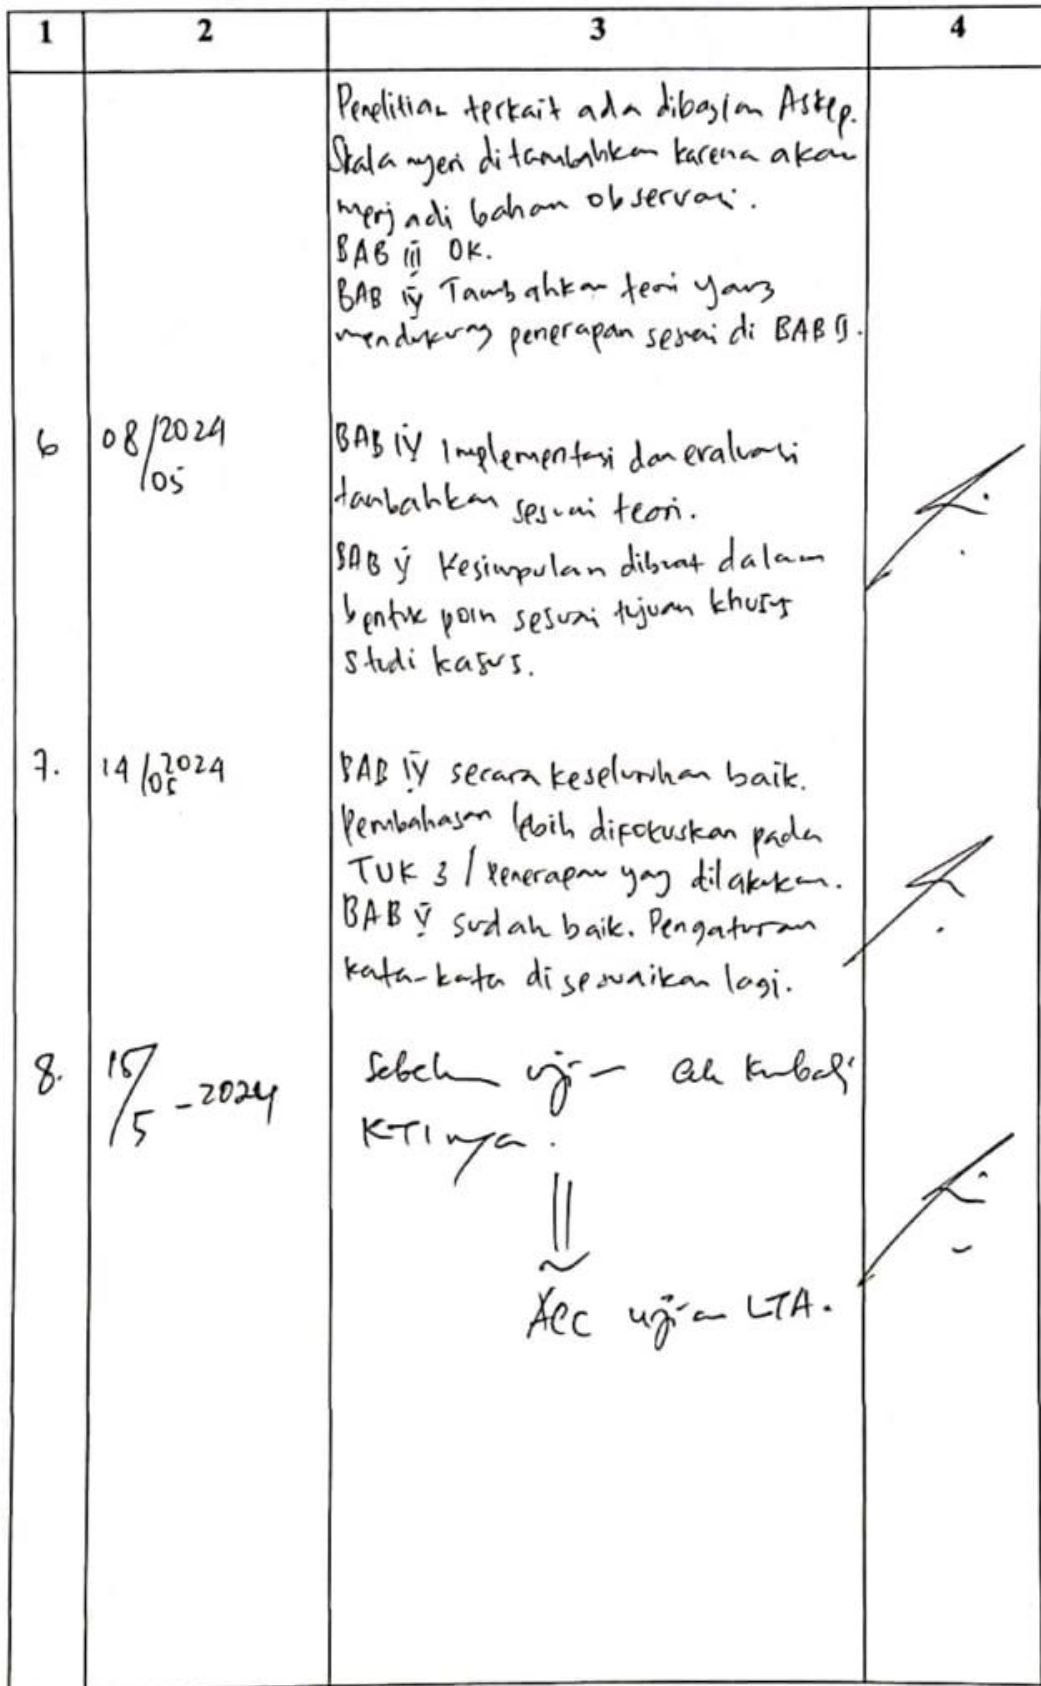 1 2 3 4
Penelitian terkait ada dibagian Askep.
Skala nyeri ditambahkan karena akan
menjadi bahan observasi.
BAB III OK.
BAB IV Tambahkan teori yang
mendukung penerapan sesuai di BAB II.
6 08/05/2024 BAB IV Implementasi dan evaluasi
tambahkan sesuai teori.
BAB V Kesimpulan dibuat dalam
bentuk poin sesuai tujuan khusus
studi kasus.
7. 14/05 2024 BAB IV secara keseluruhan baik.
Pembahasan lebih difokuskan pada
TUK 3 / Penerapan yag dilakukan.
BAB V sudah baik. Pengaturan
kata-kata disesuaikan lagi.
8. /5-2024 Sebelum uji cek kembali
KTInya.
Acc ujian LTA.